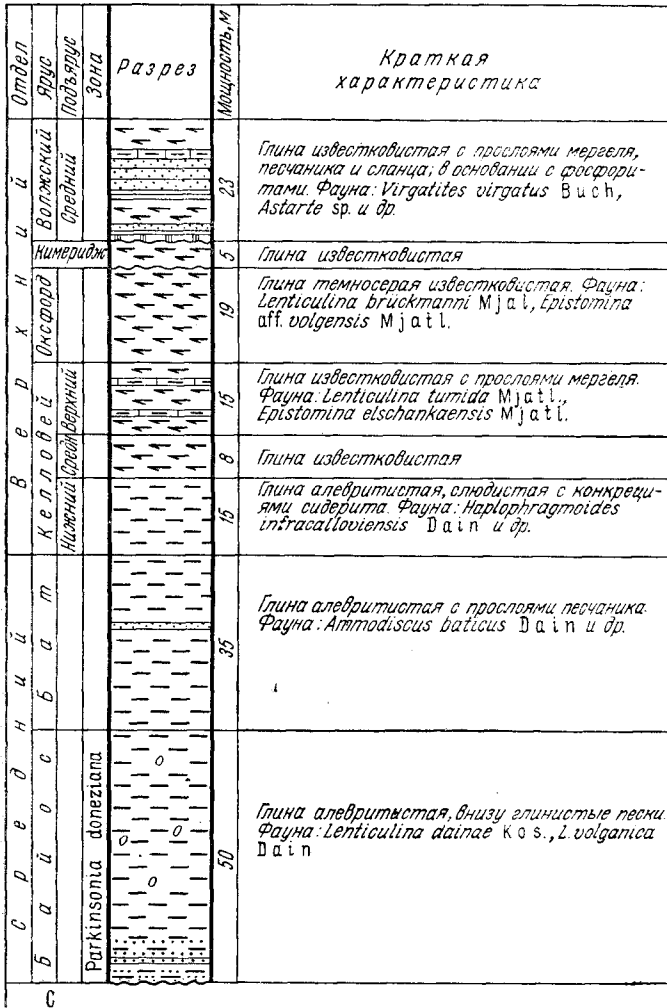 Отдел
Ярус
Подъярус
Зона
Разрез
Мощность, м
Краткая
характеристика
Верхний
Волжский
Средний
23
Глина известковистая с прослоями мергеля,
песчаника и сланца; в основании с фосфори-
тами. Фауна: Virgatites virgatus Buch,
Astarte sp. и др.
Кимеридж
5
Глина известковистая
Оксфорд
19
Глина темносерая известковистая. Фауна:
Lenticulina brückmanni Mjal, Epistomina
aff. volgensis Mjatl.
Келловей
Верхний
15
Глина известковистая с прослоями мергеля.
Фауна: Lenticulina tumida Mjatl.,
Epistomina elschankaensis Mjatl.
Средн
8
Глина известковистая
Нижний
15
Глина алевритистая, слюдистая с конкреци-
ями сидерита. Фауна: Haplophragmoides
infracalloviensis Dain и др.
Средний
Бат
35
Глина алевритистая с прослоями песчаника.
Фауна: Ammodiscus baticus Dain и др.
Байос
Parkinsonia doneziana
50
Глина алевритыстая, внизу глинистые пески.
Фауна: Lenticulina dainae Kos., L. volganica
Dain
С